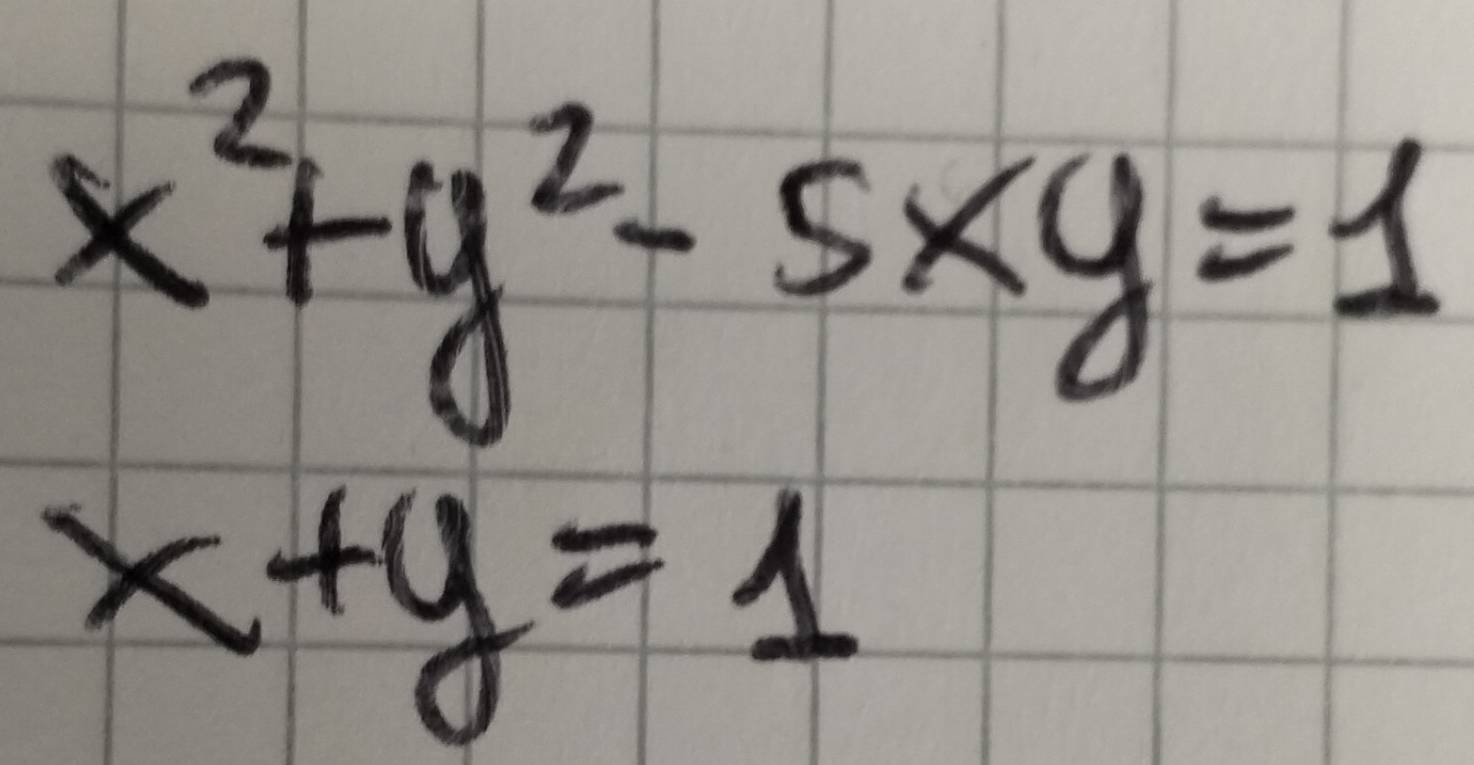 x²+y²- 5xy=1
x+y=1